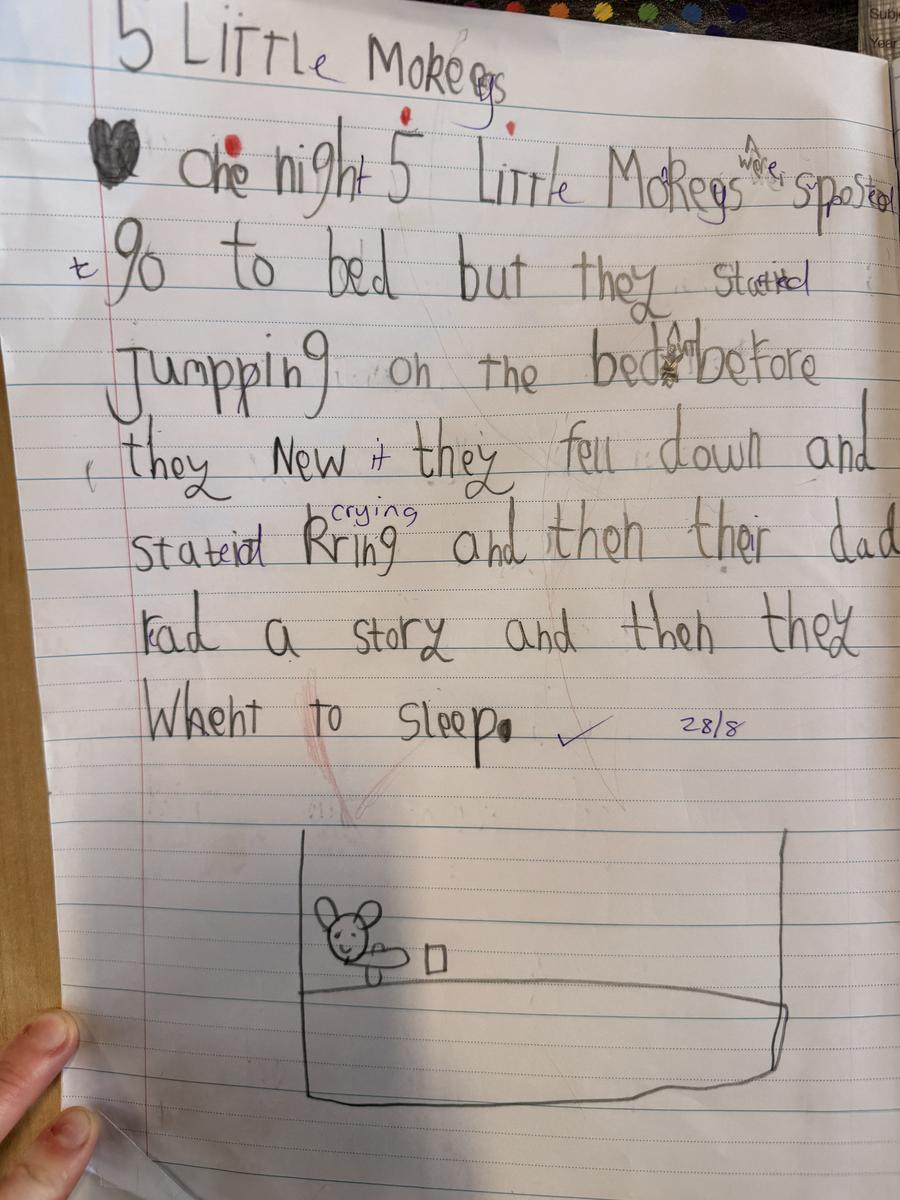 5 Little Mokegs
One night 5 Little Mokegs were spposted
to go to bed but they stated
Jumpping on the bed but before
they New it they fell down and
stated Kring crying and then their dad
rad a story and then they
Whent to sleep.
28/8
Subj
Year